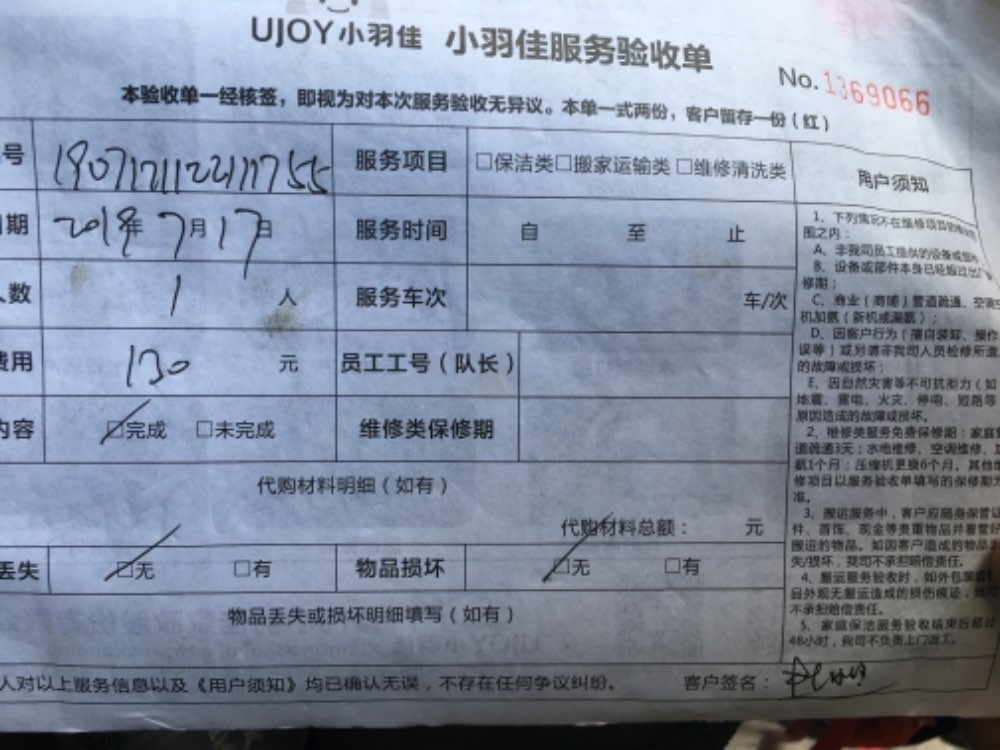 UJOY小羽佳 小羽佳服务验收单
No.1369066
本验收单一经核签，即视为对本次服务验收无异议。本单一式两份，客户留存一份（红）
号 服务项目 □保洁类□搬家运输类□维修清洗类
期 2019年7月17日 服务时间 自 至 止
人数 1 人 服务车次 车/次
费用 130 元 员工工号（队长）
内容 □完成 □未完成 维修类保修期
代购材料明细（如有）
代购材料总额： 元
丢失 □无 □有 物品损坏 □无 □有
物品丢失或损坏明细填写（如有）
人对以上服务信息以及《用户须知》均已确认无误，不存在任何争议纠纷。 客户签名：
用户须知
1、下列情况不在维修项目
围之内：
A、非我司员工提供的设备或
B、设备或部件本身已经超过出厂
修期；
C、商业（商铺）管道疏通、空调
机加氨（新机或漏氨）；
D、因客户行为（擅自装卸、操作
误等）或另聘非我司人员检修所造
的故障或损坏；
E、因自然灾害等不可抗拒力（如
地震、雷电、火灾、停电、短路等
原因造成的故障或损坏。
2、维修类服务免费保修期：家庭
道疏通3天；水电维修、空调维修、
氨1个月；压缩机更换6个月。其他
修项目以服务验收单填写的保修期为
准。
3、搬运服务中，客户应随身保管证
件、首饰、现金等贵重物品并看管好
搬运的物品。如因客户造成的物品丢
失/损坏，我司不承担赔偿责任。
4、搬运服务验收时，如外包装
品外观无搬运造成的损伤痕迹，我司
不承担赔偿责任。
5、家庭保洁服务验收结束后超过
48小时，我司不负责上门返工。